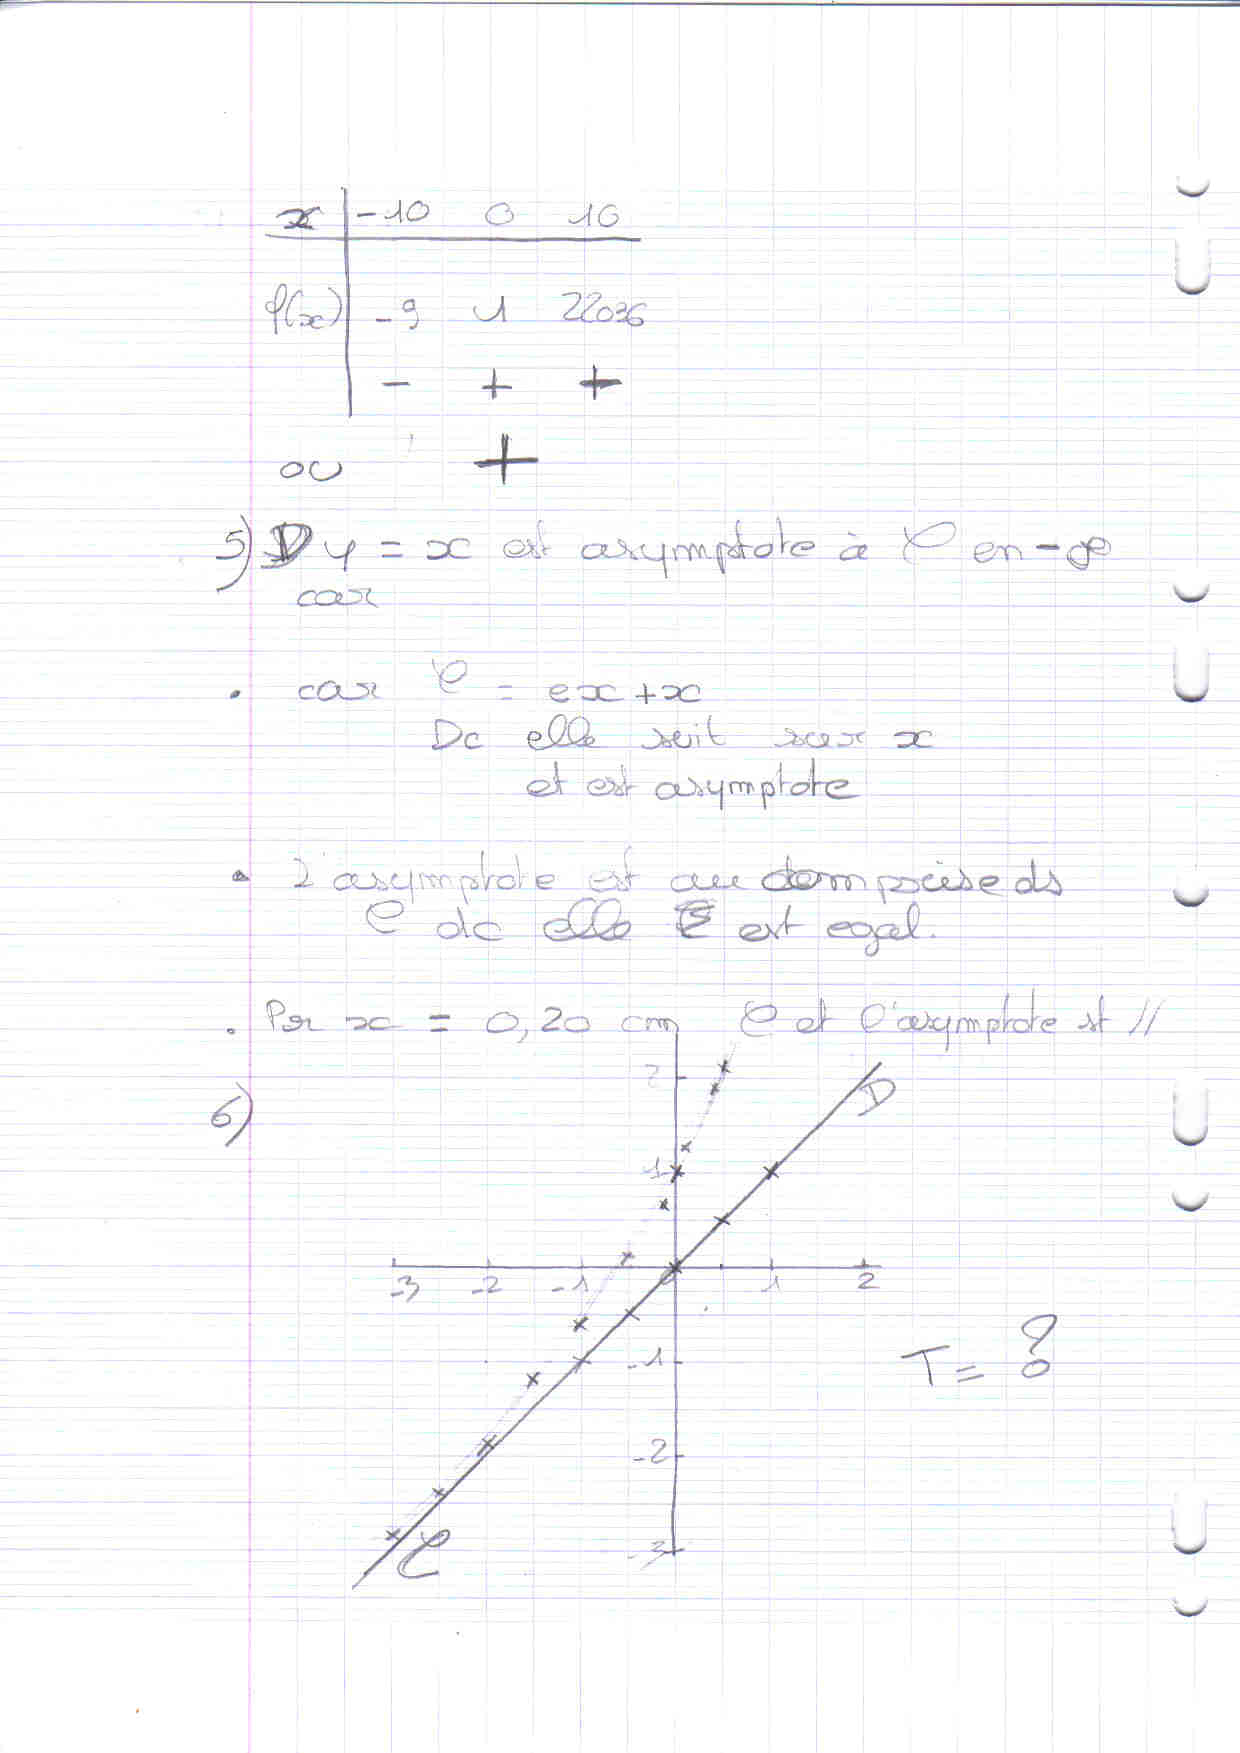 x | -10 0 10
f(x) | -9 1 22036
- + +
ou +
5) D y = x est asymptote à C en -∞
car
. car C = ex + x
Dc elle suit sur x
et est asymptote
. L'asymptote est au ds
C dc elle est egal.
. Per x = 0,20 cm C et l'asymptote st //
6)
2
D
1
-3 -2 -1 0 1 2
-1
T = ?
-2
-3
C